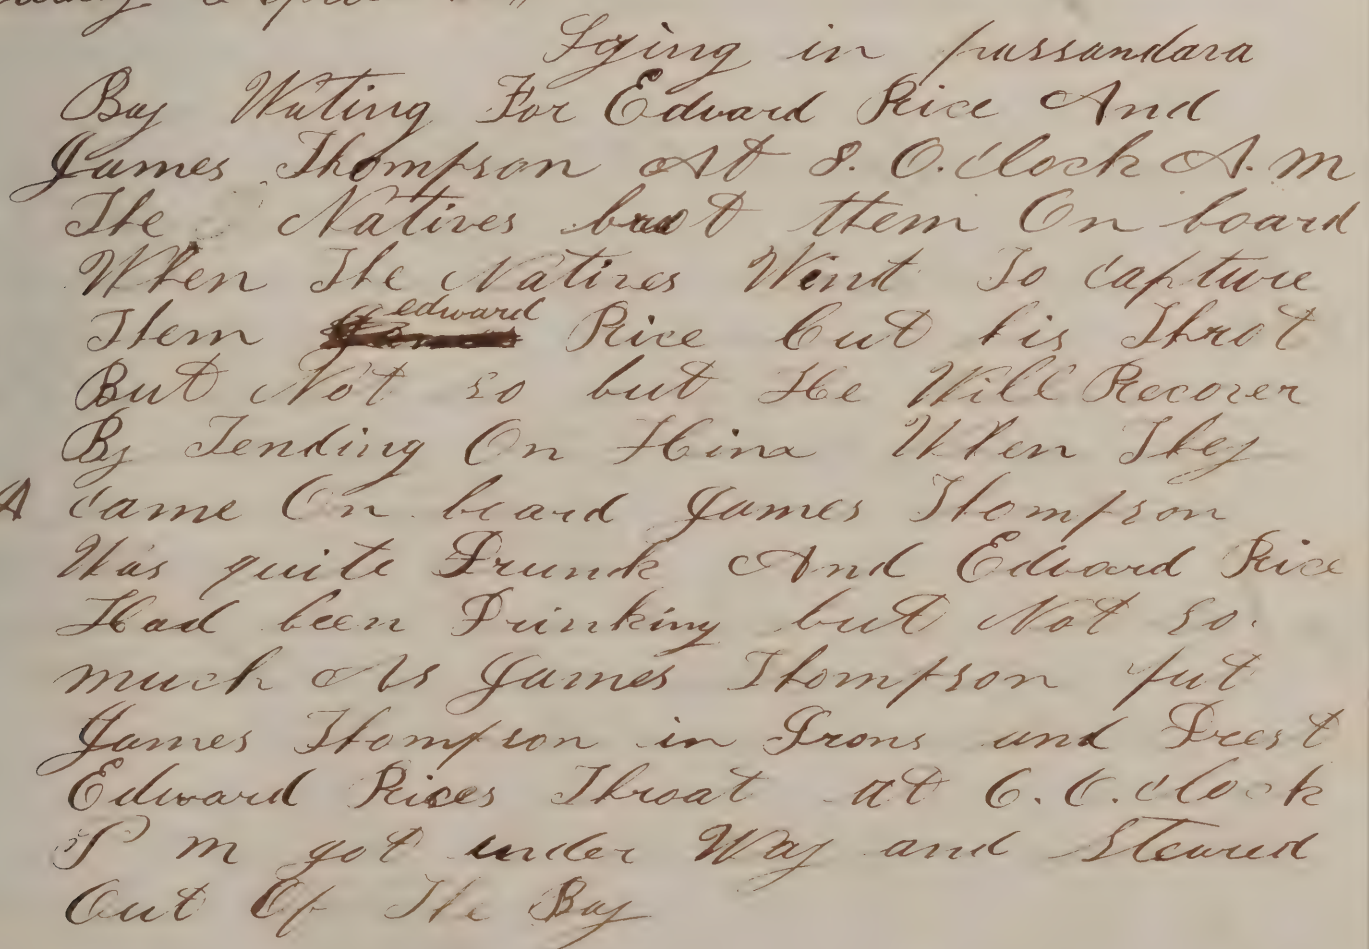 Lying in passandara
Bay Wating For Edward Rice And
James Thompson At 8. O.Clock A. m
The Natives brot them On board
When The Natives Wint To Capture
Them edward Rice Cut his Throt
But Not so but He Will Recover
By Tending On Him When They
A Came On board James Thompson
Was quite Drunk And Edward Rice
Had been Drinking but Not so.
much As James Thompson put
James Thompson in Irons and Drest
Edward Rices Throat at 6. O.clock
P m got under Way and Steared
Out Of The Bay